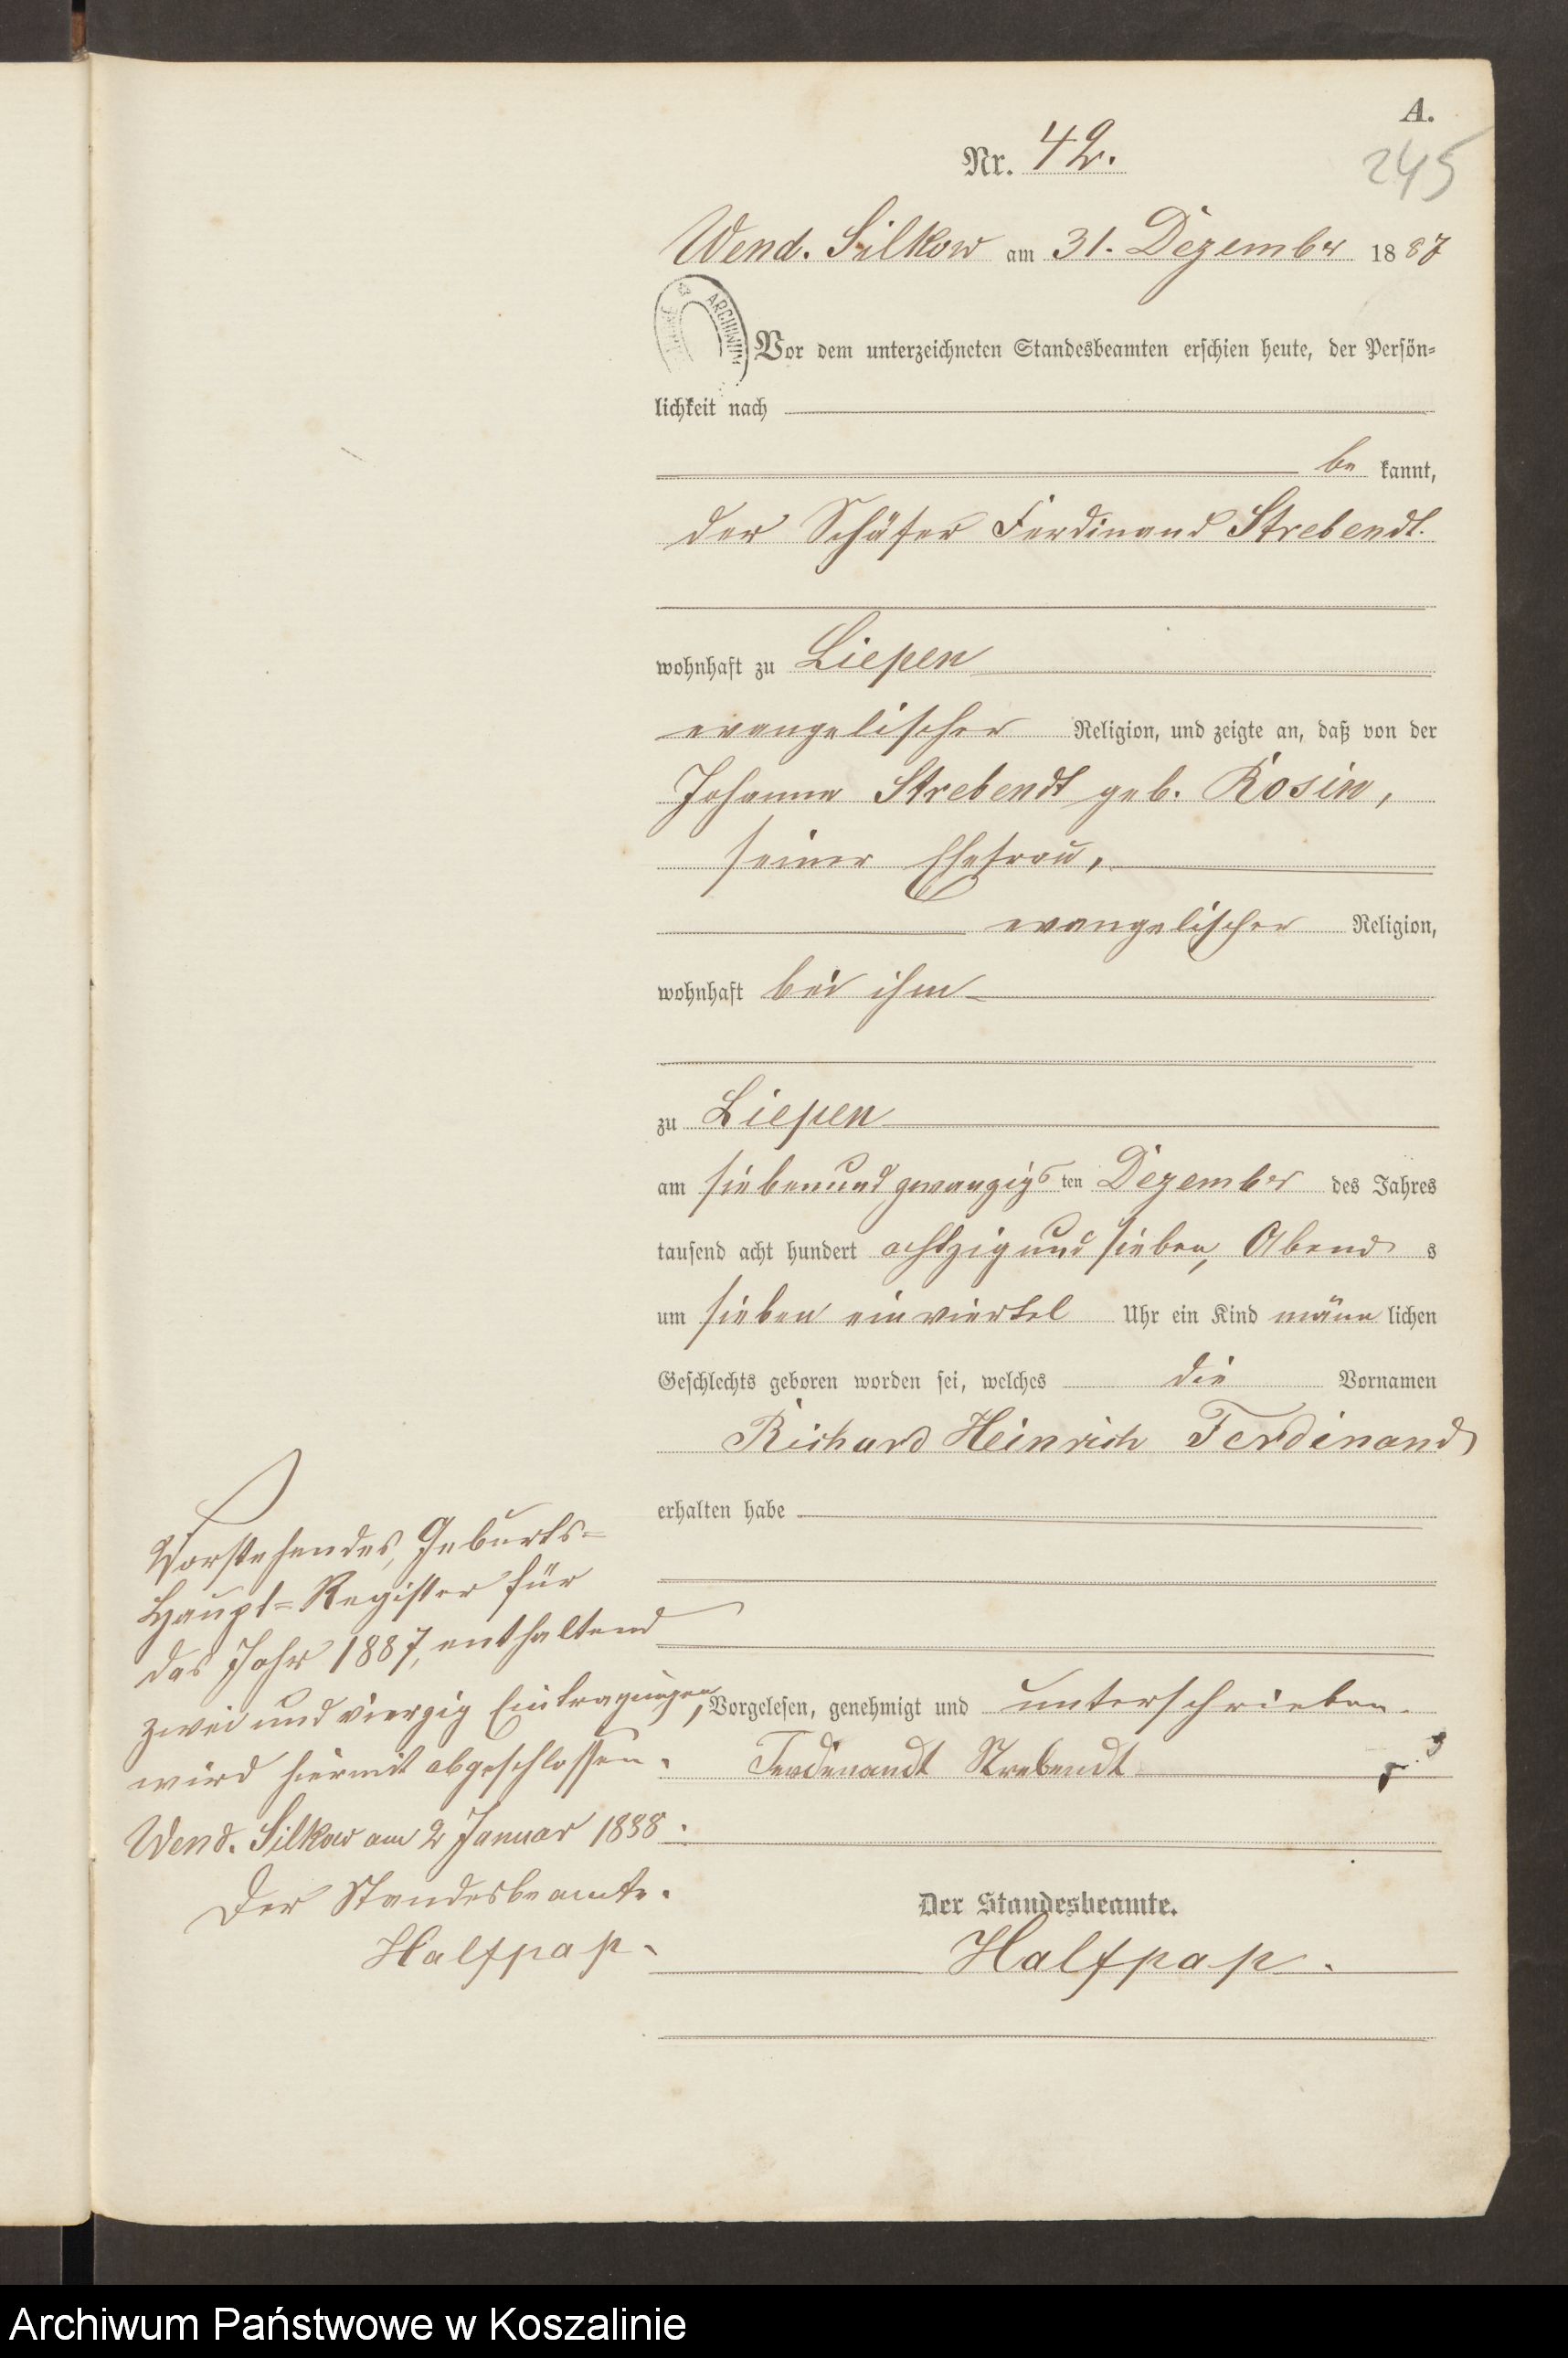 A.
Nr. 42.
245
Wend. Silkow am 31. Dezember 1887
ARCHIWUM
Vor dem unterzeichneten Standesbeamten erschien heute, der Persön-
lichkeit nach
be kannt,
der Schäfer Ferdinand Strebendt.
wohnhaft zu Liepen
evangelischer Religion, und zeigte an, daß von der
Johanna Strebendt geb. Rosin,
seiner Ehefrau,
evangelischer Religion,
wohnhaft bei ihm
zu Liepen
am siebenundzwanzigsten Dezember des Jahres
tausend acht hundert achtzig und sieben, Abends
um sieben ein viertel Uhr ein Kind männlichen
Geschlechts geboren worden sei, welches die Vornamen
Richard Heinrich Ferdinand
erhalten habe
Vorgelesen, genehmigt und unterschrieben.
Ferdinandt Strebendt
Der Standesbeamte.
Halfpap.
Vorstehendes Geburts-
Haupt-Register für
das Jahr 1887, enthaltend
zwei und vierzig Eintragungen,
wird hiermit abgeschlossen.
Wend. Silkow am 2 Januar 1888.
Der Standesbeamte.
Halfpap.
Archiwum Państwowe w Koszalinie